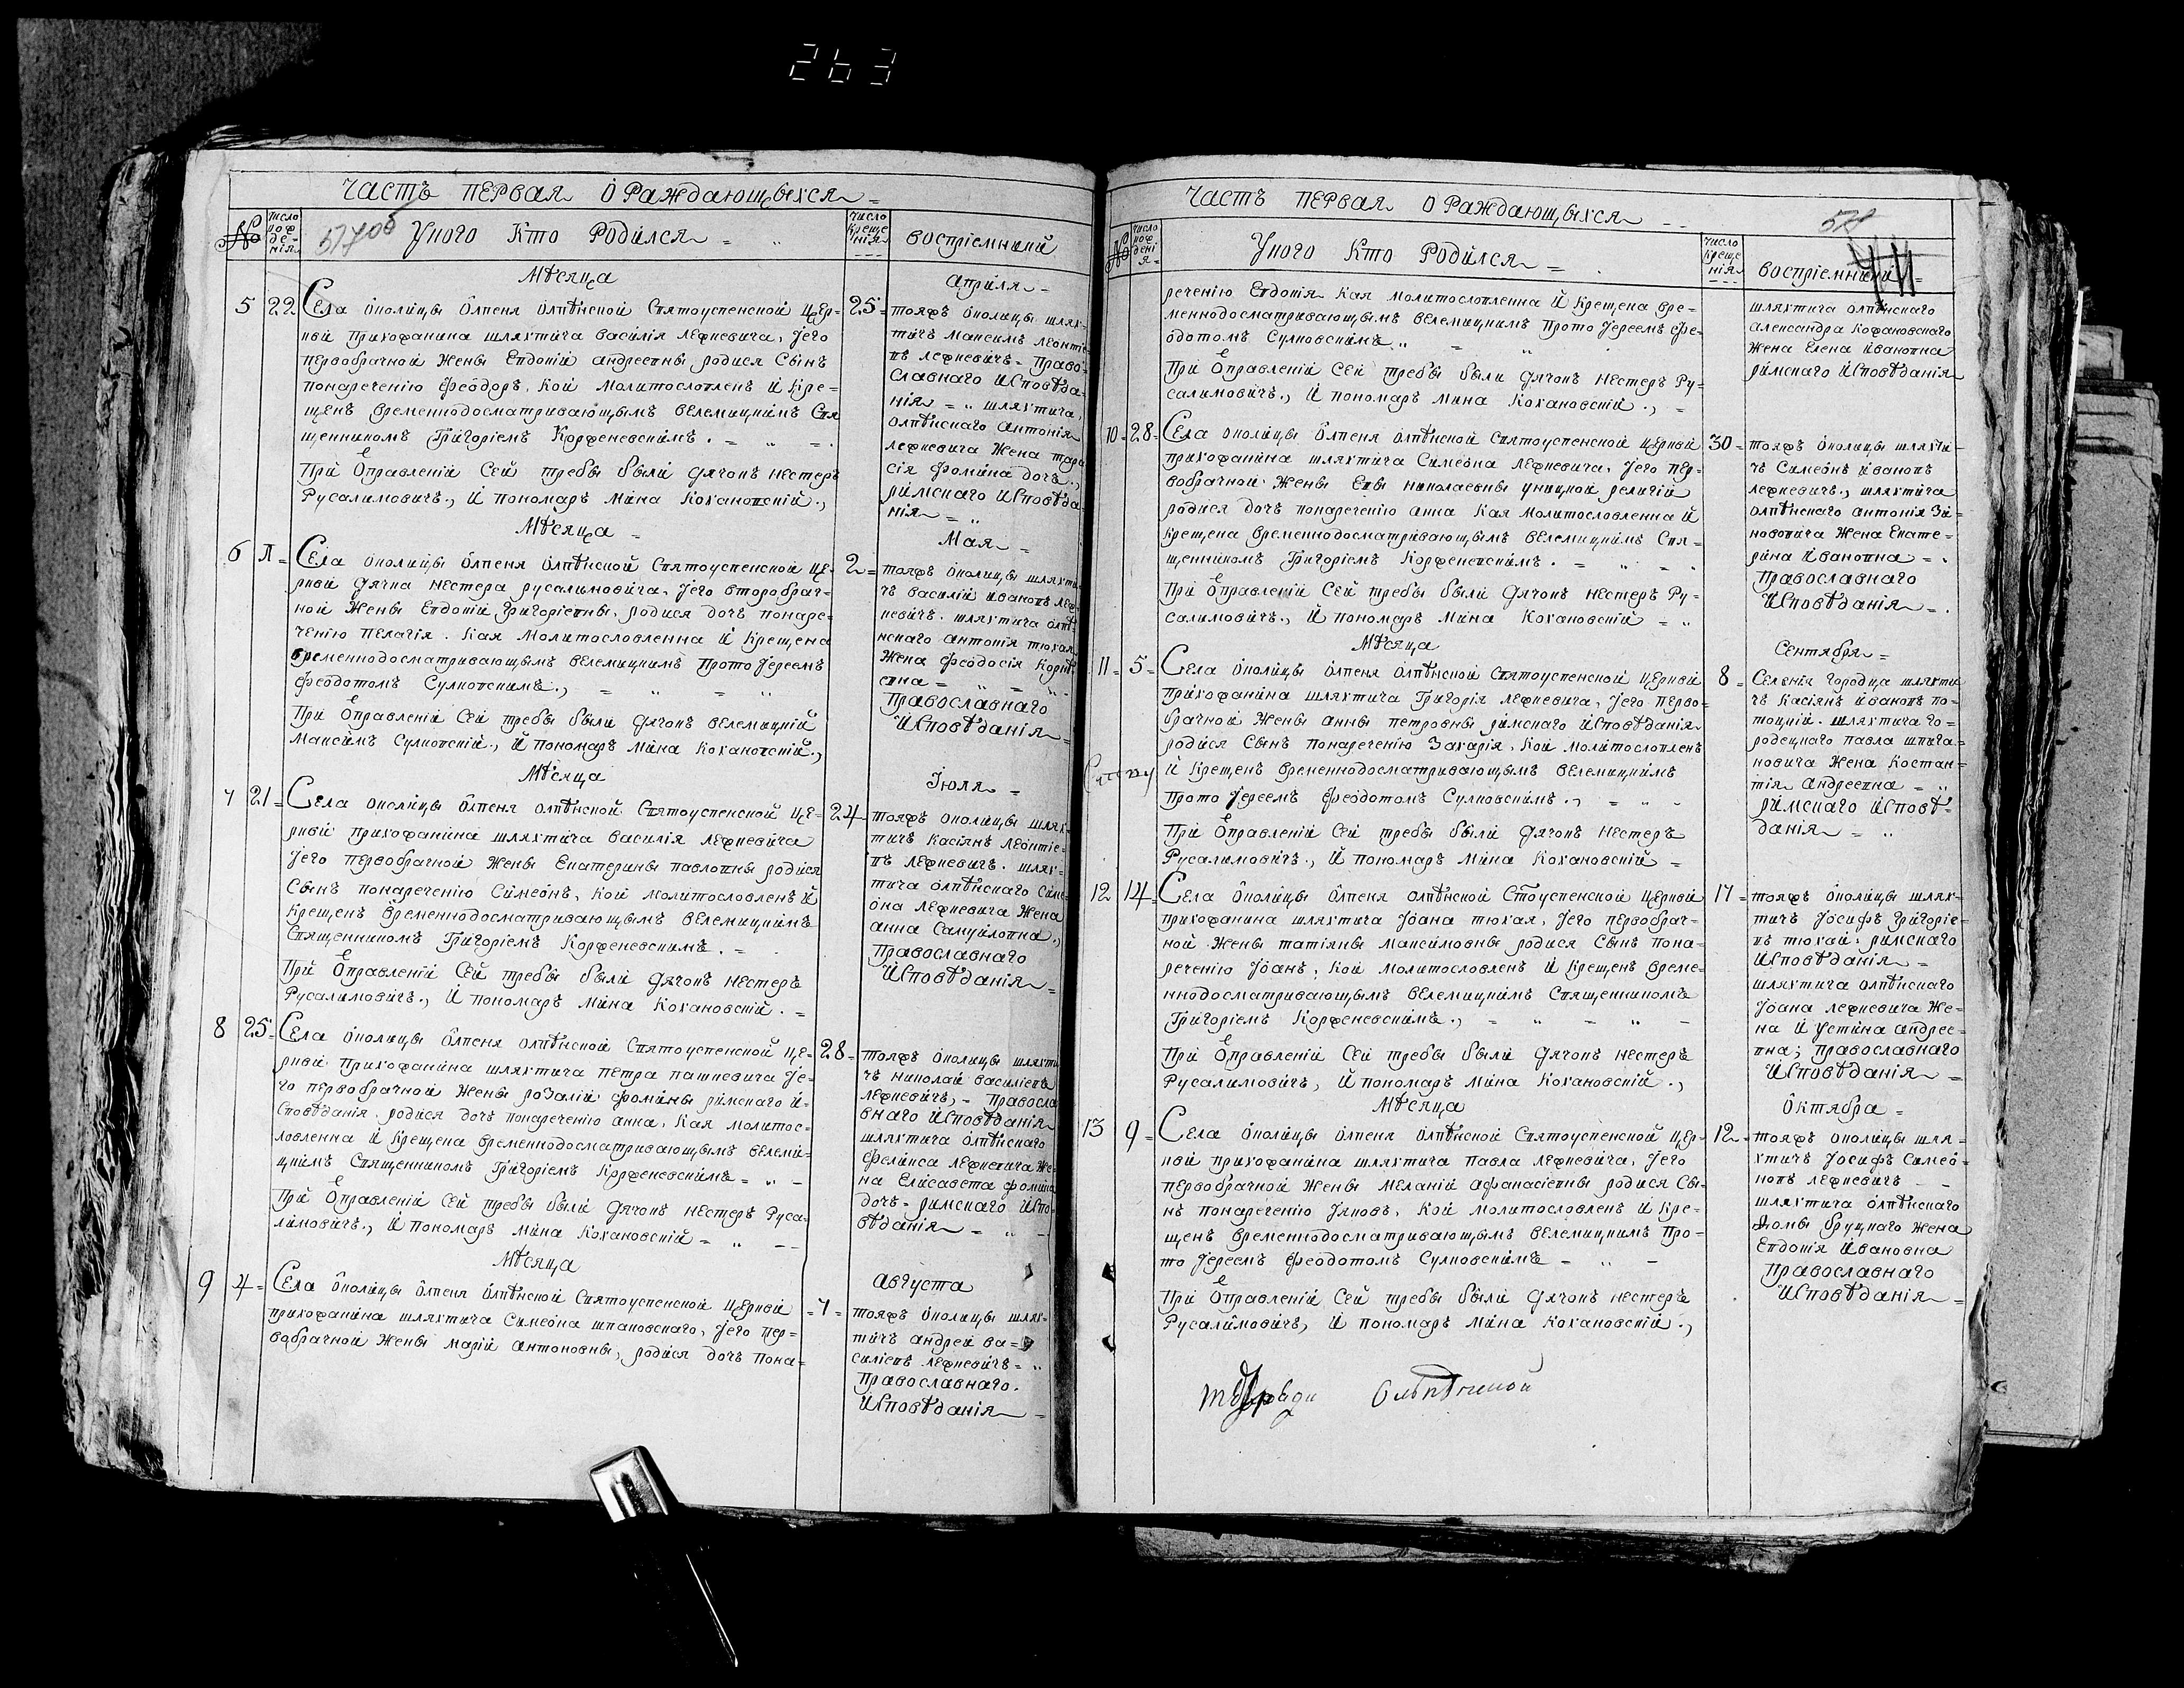 263
Часть первая о Раждающыхся
№
число рождения
Уного Кто Родился
число крещения
воспріемникй
Мѣсяца
Априля
5 22 Села Околицы Олпеня Олпѣнской Святоуспенской Цер-
квй Прихожанина шляхтича василія лефневича, Jего
первобрачной Жены Евдокіи андреевны родися Сынъ
понаречению Феодоръ, кой молитвословленъ и кре-
щенъ временнодосматривающымъ велемицкимъ Свя
щенникомъ Григоріемъ Корженевскимъ.
При Оправленіи Сей требы были дячокъ нестеръ
Русалимовичъ., И пономаръ Мина Кохановскій.,
25 тояжъ околицы шлях-
тичъ Максимъ Леонтіе-
въ лефневичъ - Право-
славнаго Исповѣда-
нія шляхтича
олпѣнскаго антонія
лефневича Жена
Фомина дочь.,
римскаго Исповѣда-
нія
Мѣсяца
Мая
6 Л Села околицы Олпеня Олпѣнской Святоуспенской Це-
рквй дячка нестера русалимовича, Jего второбрач-
ной Жены Евдокіи Григоріевны, родися дочъ понаре-
чению пелагія. Кая Молитвословленна И Крещена
временнодосматривающымъ велемицкимъ Прото Jереемъ
Феодотомъ Сулковскимъ.,
При Оправленіи Сей требы были дячокъ велемицкій
Максимъ Сулковскій., И пономаръ Мина Кохановскій.,
2 тояжъ околицы шляхти
чъ василій ивановъ леф-
невичъ. шляхтича олпѣ-
нскаго антонія тюхая
Жена Феодосія
евна
Православнаго
Исповѣданія
Мѣсяца
Июля
7 21 Села околицы Олпеня олпѣнской Святоуспенской Це-
рквй прихожанина шляхтича василія лефневича
Jего первобрачной Жены Екатерины павловны родися
Сынъ понаречению Симеонъ, кой молитвословленъ И
Крещенъ временнодосматривающымъ велемицкимъ
Священникомъ Григоріемъ Корженевскимъ.
При Оправленіи Сей требы были дячокъ нестеръ
Русалимовичъ., И пономаръ Мина Кохановскій.
24 тояжъ околицы шлях-
тичъ Касіянъ Леонтіе-
въ лефневичъ. шлях-
тича олпѣнскаго Симе-
она лефневича Жена
анна Самуйловна.,
Православнаго
Исповѣданія
8 25 Села околицы Олпеня олпѣнской Святоуспенской Це-
рквй Прихожанина шляхтича петра пашкевича Jе-
го первобрачной Жены розаліи Фомины римскаго И-
сповѣданія. родися дочъ понаречению анна, Кая молитвос-
ловленна И Крещена временнодосматривающымъ велеми-
цкимъ Священникомъ Григоріемъ Корженевскимъ
При Оправленіи Сей требы были дячокъ нестеръ Руса-
лимовичъ., И пономаръ Мина Кохановскій
28 тояжъ околицы шляхти
чъ николай василіевъ
лефневичъ, - Правосла
внаго Исповѣданія
шляхтича олпѣнскаго
Феликса лефневича Же-
на Елисавета Фомина
дочъ - римскаго Испо-
вѣданія
Мѣсяца
Августа
9 4 Села околицы Олпеня Олпѣнской Святоуспенской Церквй
прихожанина шляхтича Симеона шпаковскаго, Jего пер-
вобрачной Жены маріи антоновны, родися дочъ пона-
7 тояжъ околицы шлях-
тичъ андрей ва-
силіевъ лефневичъ
Православнаго.
Исповѣданія
Часть первая о Раждающыхся
№
число рождения
Уного Кто Родился
число крещения
воспріемникй
речению Евдокія Кая молитвословленна И крещена вре-
меннодосматривающымъ велемицкимъ Прото Jереемъ Фе-
одотомъ Сулковскимъ.,
При Оправленіи Сей требы были дячокъ нестеръ Ру-
салимовичъ., И пономаръ Мина Кохановскій.,
шляхтича олпѣнскаго
александра Кохановскаго
Жена Елена Ивановна
римскаго Исповѣданія
10 28 Села околицы Олпеня олпѣнской Святоуспенской Церквй
прихожанина шляхтича Симеона лефневича, Jего пер-
вобрачной Жены Евы николаевны уницкой религіи
родися дочъ понаречению анна Кая молитвословленна И
крещена временнодосматривающымъ велемицкимъ Свя-
щенникомъ Григоріемъ Корженевскимъ.
При Оправленіи Сей требы были дячокъ нестеръ Ру-
салимовичъ., И пономаръ Мина Кохановскій
30 тояжъ околицы шляхти-
чъ Симеонъ Ивановъ
лефневичъ., шляхтича
олпѣнскаго антонія Зи-
новича Жена Екате-
рина Ивановна
Православнаго
Исповѣданія
Мѣсяца
Сентября
11 5 Села околицы Олпеня Олпѣнской Святоуспенской Церквй
прихожанина шляхтича Григорія лефневича, Jего перво-
брачной Жены анны петровны римскаго Исповѣданія
родися Сынъ понаречению Захарія, Кой молитвословленъ
И крещенъ временнодосматривающымъ велемицкимъ
Прото Jереемъ Феодотомъ Сулковскимъ.,
При Оправленіи Сей требы были дячокъ нестеръ
Русалимовичъ., И пономаръ Мина Кохановскій
8 Селенія Городца шляхти
чъ Касіянъ ивановъ по-
тоцкій. шляхтича го-
родецкаго павла шпига-
новича Жена Костан-
тія андреевна
римскаго Исповѣ-
данія
12 14 Села Околицы Олпеня олпѣнской Стоуспенской Церквй
прихожанина шляхтича Jоана тюхая, Jего первобрач-
ной Жены татіяны Максимовны родися Сынъ пона-
речению Jоанъ, Кой молитвословленъ И крещенъ време-
ннодосматривающымъ велемицкимъ Священникомъ
Григоріемъ Корженевскимъ.,
При Оправленіи Сей требы были дячокъ нестеръ
Русалимовичъ, И пономаръ Мина Кохановскій.,
17 тояжъ околицы шлях-
тичъ Jосифъ Григоріе-
въ тюхай. римскаго
Исповѣданія
шляхтича олпѣнскаго
Jоана лефневича Же-
на Иустина андрее-
вна; православнаго
Исповѣданія
Мѣсяца
Октября
13 9 Села околицы Олпеня олпѣнской Святоуспенской Цер-
квй прихожанина шляхтича Павла лефневича, Jего
первобрачной Жены меланіи афанасіевны родися Сы-
нъ понаречению Jяковъ, Кой молитвословленъ И кре-
щенъ временнодосматривающымъ велемицкимъ Про-
то Jереемъ Феодотомъ Сулковскимъ
При Оправленіи Сей требы были дячокъ нестеръ
Русалимовичъ, И пономаръ Мина Кохановскій.,
12 тояжъ околицы шля-
хтичъ Jосифъ Симео-
новъ лефневичъ
шляхтича олпѣнскаго
Фомы бруцкаго жена
Евдокія Ивановна
Православнаго
Исповѣданія